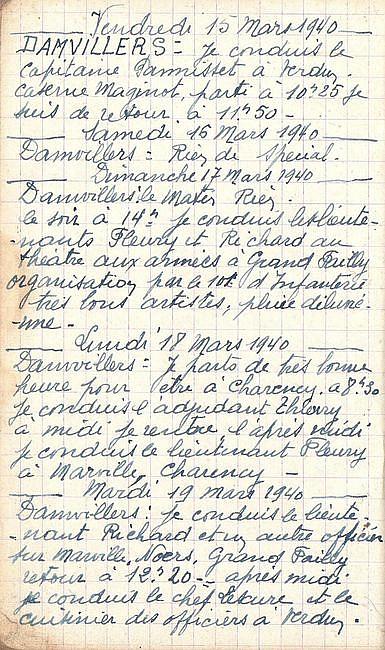 Vendredi 15 Mars 1940
DAMVILLERS = Je conduis le
Capitaine Dannisset à Verdun.
Caserne Maginot, parti à 10h25 je
suis de retour à 11h50 -
Samedi 16 Mars 1940
Damvillers = Rien de Spécial.
Dimanche 17 Mars 1940
Damvillers: le Matin Rien.
le soir à 14h je conduis les lieute-
-nants Fleury et Richard au
théâtre aux armées à Grand Failly
organisation par le d'Infanterie
très bons artistes,
-me -
Lundi 18 Mars 1940
Damvillers = Je parts de très bonne
heure pour être à Charency à 8h30
je conduis l'adjudant Thierry
à midi je rentre l'après midi
je conduis le lieutenant Fleury
à Marville, Charency -
Mardi 19 Mars 1940
Damvillers: je conduis le lieute-
-nant Richard et un autre officier
sur Marville, Noers, Grand Failly
retour à 12h20 -- après midi
je conduis le chef et le
cuisinier des officiers à Verdun.